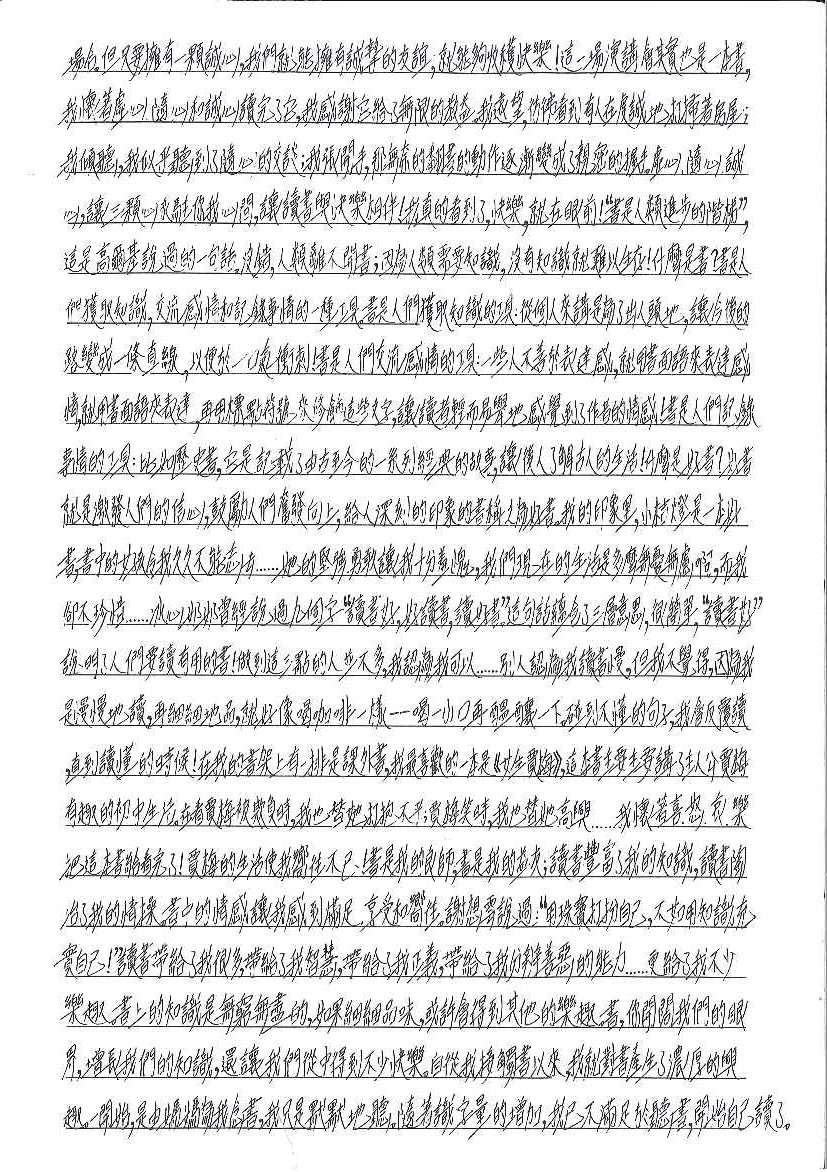 場合。但只要擁有一顆誠心,我們就能擁有誠摯的友誼,就能夠收穫快樂!這一場演講會其實也是一本書,
我懷著虛心、隨心和誠心讀完了它,我感謝它給了無限的教益。我遠望,彷彿看到有人在虔誠地打掃著房屋;
我傾聽,我似乎聽到了隨心的交談;我張開手,那無奈的翻書的動作逐漸變成了親密的握手。虛心、隨心、誠
心,讓三顆心永駐你我心間,讓讀書與快樂相伴!我真的看到了,快樂,就在眼前!“書是人類進步的階梯”,
這是高爾基說過的一句話。沒錯,人類離不開書;因為人類需要知識,沒有知識就難以生存!什麼是書?書是人
們獲取知識,交流感情和記錄事情的一種工具。書是人們獲取知識的工具:從個人來講是為了出人頭地,讓今後的
路變成一條直線,以便於一口氣衝刺!書是人們交流感情的工具:一些人不善於表達感,就用書面語來表達感
情,就用書面語來表達,再用標點符號來修飾這些文字,讓讀者輕而易舉地感覺到了作者的情感!書是人們記錄
事情的工具:比如歷史書,它是記載了由古至今的一系列經典的故事,讓後人了解古人的生活!什麼是好書?好書
就是激發人們的信心,鼓勵人們奮發向上,給人深刻的印象的書稱之為好書。我的印象里,小桔燈是一本好
書,書中的女孩令我久久不能忘懷……她的堅強勇敢讓我十分羞愧。,我們現在的生活是多麼無憂無慮啊,而我
卻不珍惜……冰心奶奶曾經說過九個字“讀書好,好讀書,讀好書。”這句話蘊含了三層意思,很簡單,“讀書好”
說明了人們要讀有用的書!做到這三點的人並不多,我認為我可以……別人認為我讀書慢,但我不覺得,因為我
是慢慢地讀,再細細地品,就好像喝咖啡一樣——喝一小口再醞釀一下。碰到不懂的句子,我會反覆讀
,直到讀懂的時候!在我的書架上有一排是課外書,我最喜歡的一本是《女生賈梅》,這本書主要主要講了主人公賈梅
有趣的初中生活。在看賈梅被欺負時,我也替她打抱不平;賈梅笑時,我也替她高興……我懷著喜、怒、哀、樂
把這本書給看完了!賈梅的生活使我嚮往不已、!書是我的良師,書是我的益友;讀書豐富了我的知識,讀書陶
冶了我的情操。書中的情感讓我感到滿足、享受和嚮往。謝想雲說過:“用珠寶打扮自己,不如用知識充
實自己!”讀書帶給了我很多,帶給了我智慧,帶給了我正義,帶給了我分辨善惡的能力……更給了我不少
樂趣。書上的知識是無窮無盡的,如果細細品味,或許會得到其他的樂趣。書,你開闊我們的眼
界,增長我們的知識,還讓我們從中得到不少快樂。自從我接觸書以來,我就對書產生了濃厚的興
趣。一開始,是由媽媽為我念書,我只是默默地聽。隨著識字量的增加,我已不滿足於聽書,開始自己讀了。